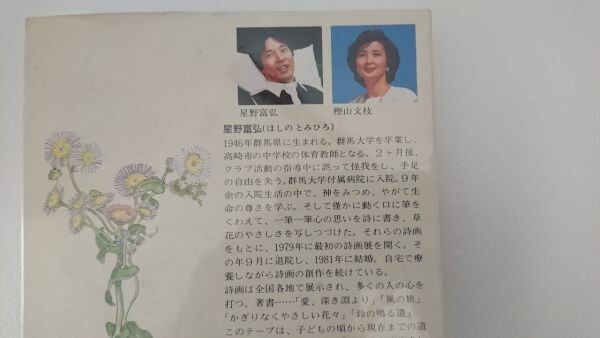 星野富弘
樫山文枝
星野富弘(ほしの とみひろ)
1946年群馬県に生まれる。群馬大学を卒業し、
高崎市の中学校の体育教師となる。2ヶ月後、
クラブ活動の指導中に誤って怪我をし、手足
の自由を失う。群馬大学付属病院に入院。9年
余の入院生活の中で、神をみつめ、やがて生
命の尊さを学ぶ。そして僅かに動く口に筆を
くわえて、一筆一筆心の思いを詩に書き、草
花のやさしさを写しつづけた。それらの詩画
をもとに、1979年に最初の詩画展を開く。そ
の年9月に退院し、1981年に結婚。自宅で療
養しながら詩画の創作を続けている。
詩画は全国各地で展示され、多くの人の心を
打つ。著書……「愛、深き淵より」「風の旅」
「かぎりなくやさしい花々」「鈴の鳴る道」
このテープは、子どもの頃から現在までの道